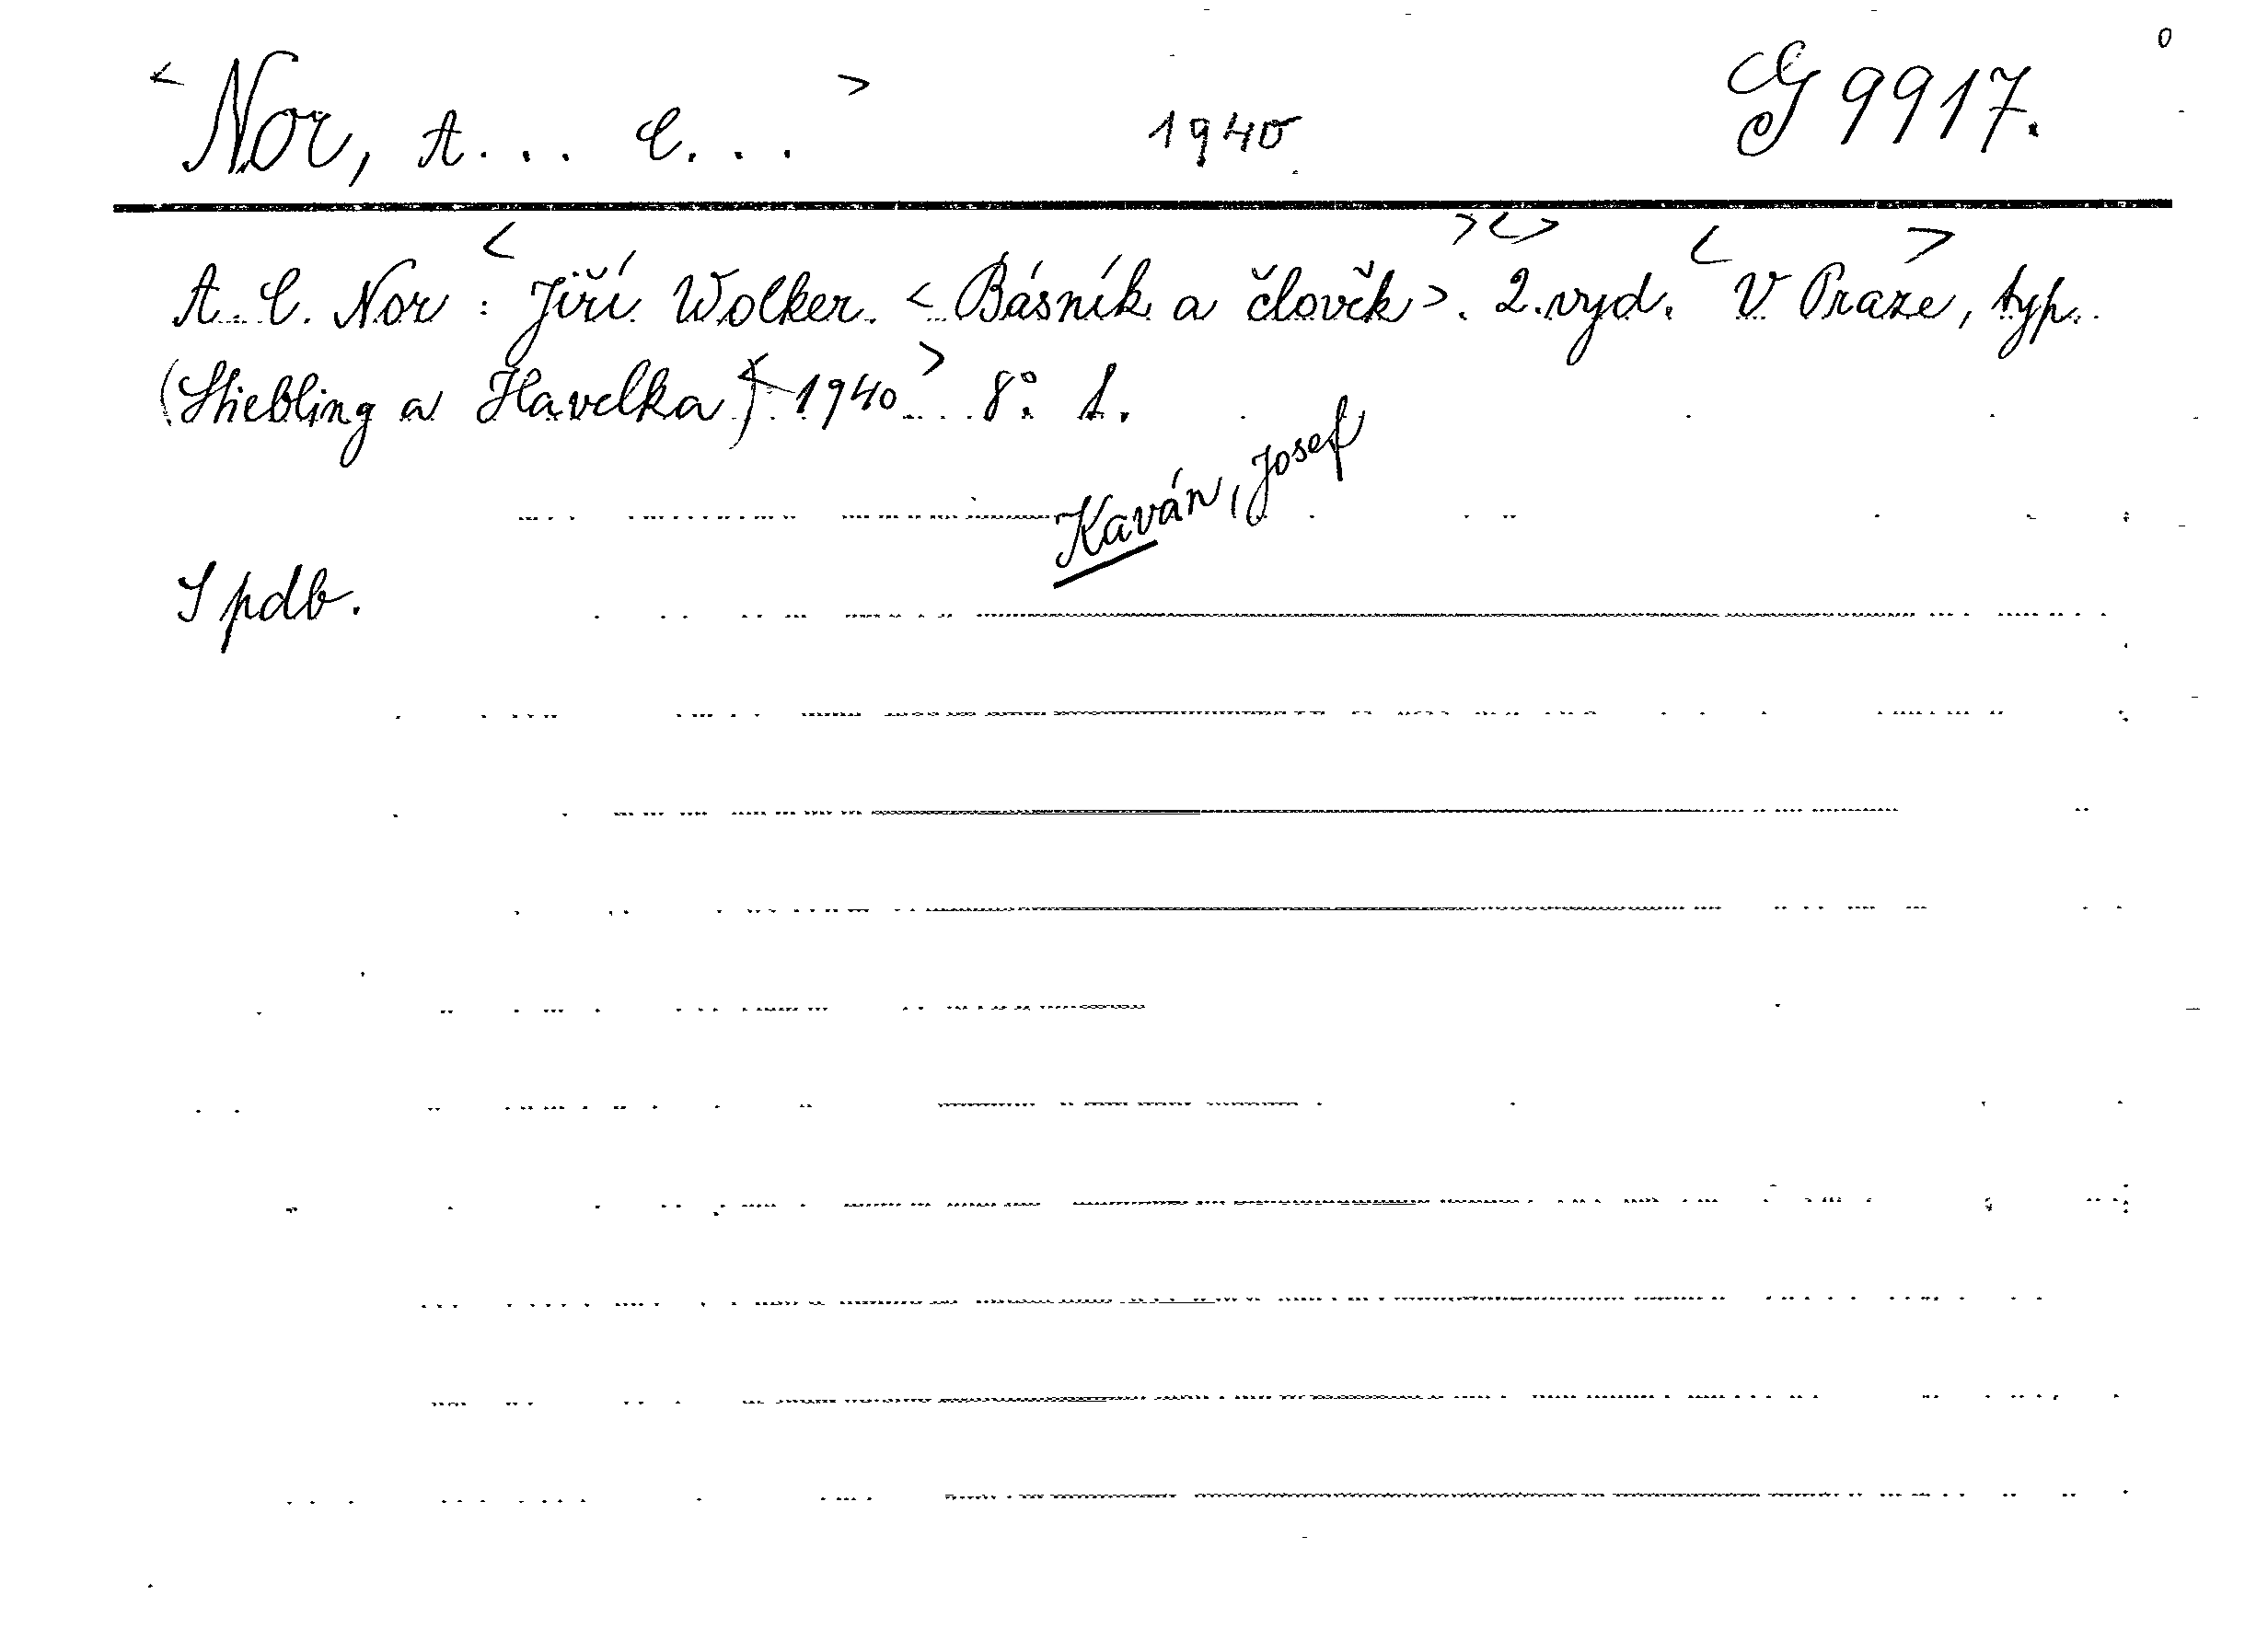 <Nor, A... C...> 1940 G 9917.
A. C. Nor: <Jiří Wolker. <Básník a člověk>.><2.> vyd. <V Praze>, typ.
(Stiebling a Havelka) <1940> 8°. 1.
Kaván, Josef
S pdb.